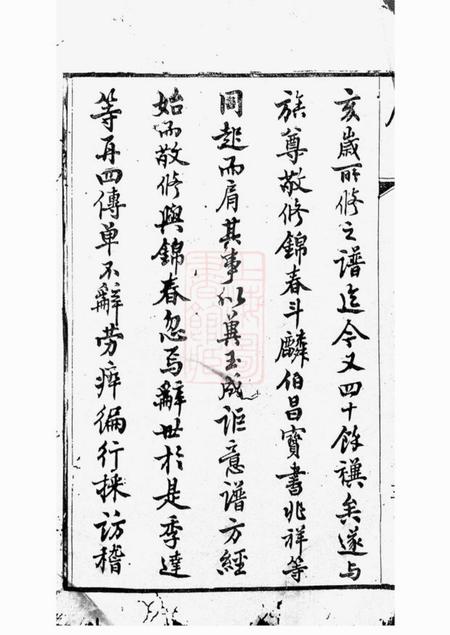 亥歲所修之譜迄今又四十餘禩矣遂与
族尊敬修錦春斗麟伯昌寶書兆祥等
同起而肩其事以冀玉成詎意譜方經
始而敬修與錦春忽焉辭世於是季達
等再四傳单不辭劳瘁徧行採訪稽